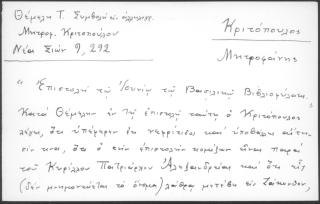 Θέμελη Τ. Συμβολή εἰς ἀλληλογρ.
Μητροφ. Κριτοπούλου
Νέα Σιών 9, 292
Κριτόπουλος
Μητροφάνης
"Ἐπιστολὴ τῷ Ἰουνίῳ τῷ Βασιλικῷ Βιβλιοφύλακι.
Κατὰ Θέμελην ἐν τῇ ἐπιστολῇ ταύτῃ ὁ Κριτόπουλος
λέγει, ὅτι ὑπέφερεν ἐκ νεφρίτιδος καὶ
ὅτι ὁ τὴν ἐπιστολὴν κομίζων εἶναι παρὰ
τοῦ Κυρίλλου Πατριάρχου Ἀλεξανδρείας καὶ ὅτι
(δὲν μνημονεύεται τὸ ὄνομα) λάθρα μετέβη εἰς Ζάκυνθον,